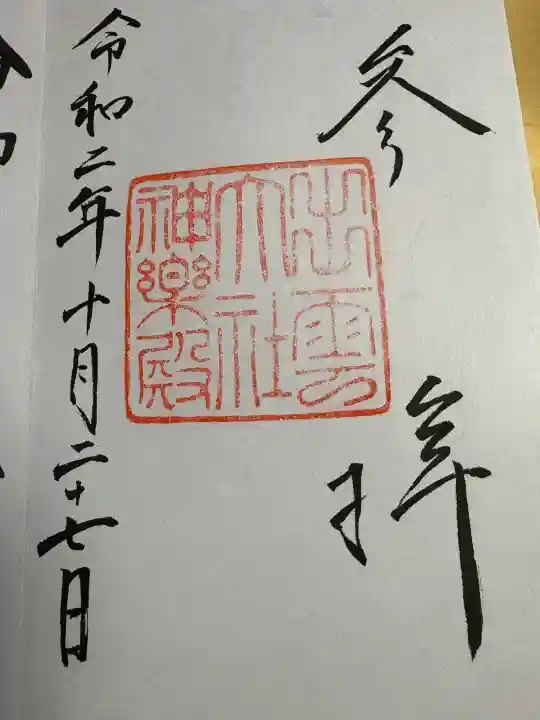 参拝
出雲
大社
神楽殿
令和二年十月二十七日